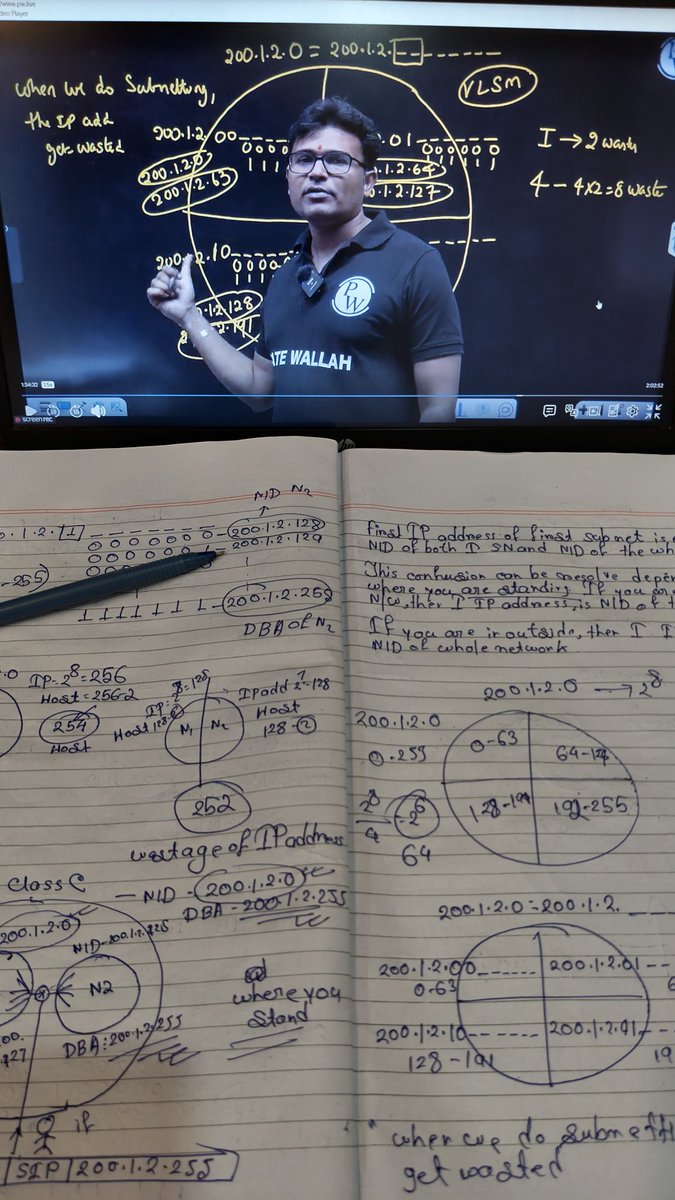 /www.pw.live
deo Player
200.1.2.0 = 200.1.2.
VLSM
when we do Subnetting,
the IP add
get wasted
200.1.2.00
.01
0 0 0 0 0 0
200.1.2.0
200.1.2.63
.1.2.64
.1.2.127
I → 2 waste
4 - 4x2=8 waste
.10
.1.2.128
PW
ATE WALLAH
1:34:32
1.5x
2:02:52
screen rec
hp
NID N2
0.1.2.|1|
200.1.2.128
200.1.2.129
-255)
200.1.2.255
DBA of N2
IP=2^8=256
Host=256-2
254
Host
IP:2^7=128
Host 128-2
N1 N2
IP add 2^7-128
Host
128-2
252
wastage of IP address
Class C
NID - 200.1.2.0
DBA - 200.1.2.255
200.1.2.0
NID-200.1.2.225
N2
DBA: 200.1.2.255
where you
stand
if
SIP 200.1.2.255
first IP address of first subnet is
NID of both I SN and NID of the wh
This confusion can be resolve depen
where you are standing If you are
N/w, then I IP address, is NID of t
If you are in outside, then I I
NID of whole network
200.1.2.0 → 2^8
200.1.2.0
0-255
0-63
64-127
128-191
192-255
2^8
4
2^6
64
200.1.2.0=200.1.2.
200.1.2.00
0-63
200.1.2.01
200.1.2.10
128-191
200.1.2.11
19
when we do subnetti
get wasted